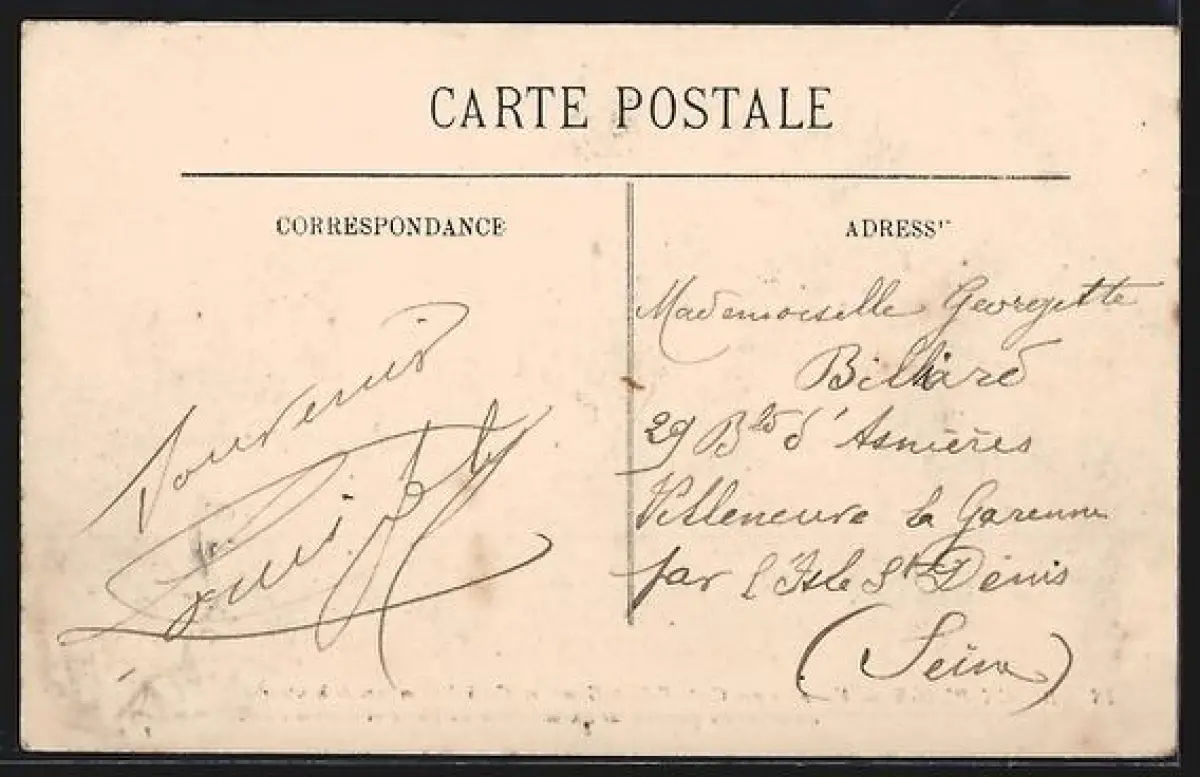 CARTE POSTALE
CORRESPONDANCE
ADRESSE
Souvenir
Louis
Mademoiselle Georgette
Billard
29 Bld d'Asnières
Villeneuve la Garenne
par l'Isle St Denis
(Seine)